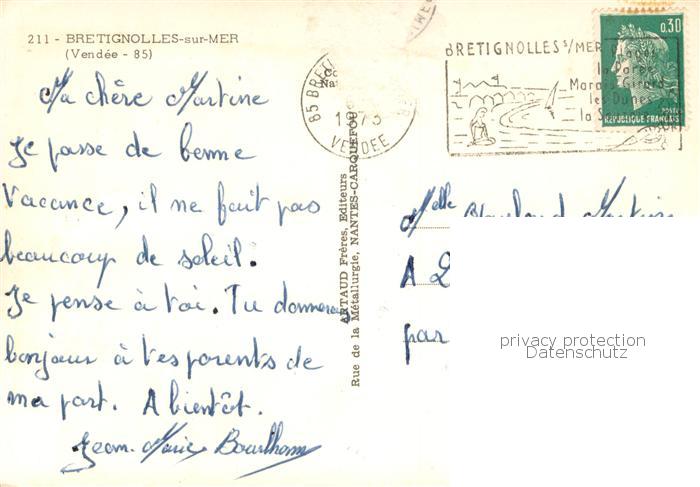 211 - BRETIGNOLLES-sur-MER
(Vendée - 85)
Ma chère Martine
Je passe de bonne
vacance, il ne fait pas
beaucoup de soleil.
Je pense à toi. Tu donneras
bonjour à tes parents de
ma part. A bientôt.
Jean-Marie
ARTAUD Frères, Editeurs
Rue de la Métallurgie, NANTES-CARQUEFOU
85 BRET
1973
VENDEE
BRETIGNOLLES S/MER
la Parée
Marais Girard
les Dunes
la S
0,30
POSTES
REPUBLIQUE FRANÇAISE
Melle Martine
A
par
privacy protection
Datenschutz